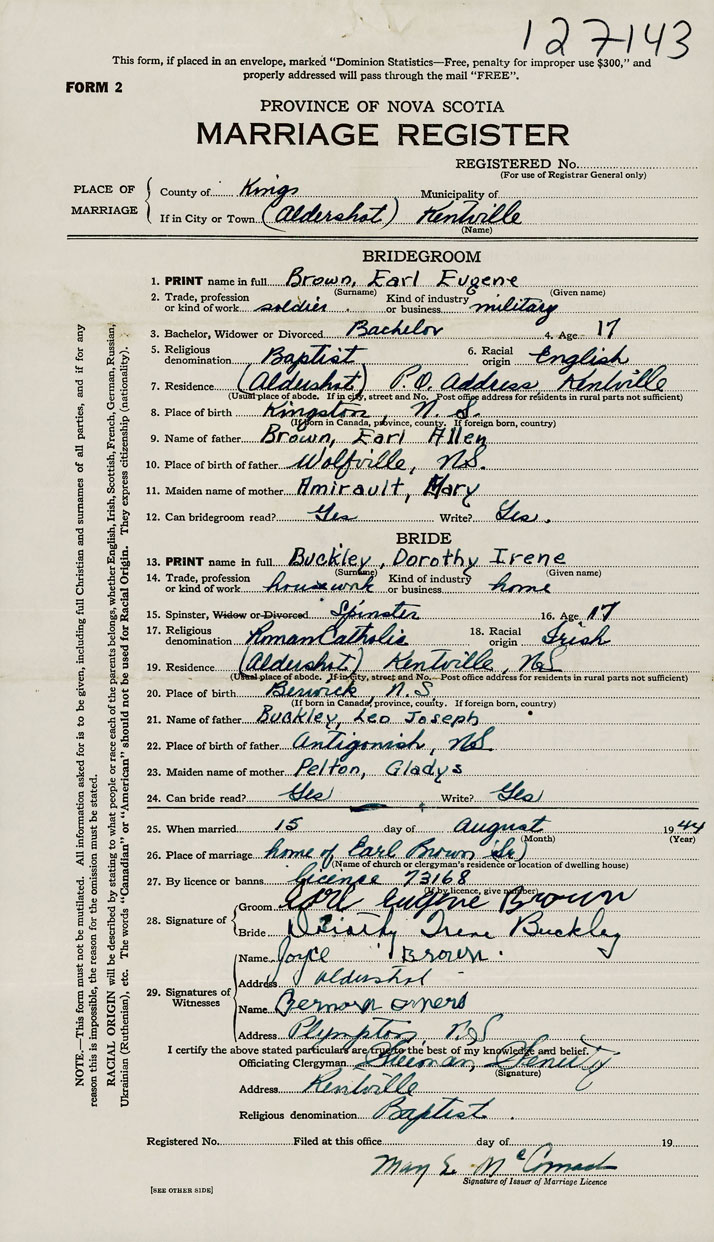 127143
This form, if placed in an envelope, marked "Dominion Statistics—Free, penalty for improper use $300," and
properly addressed will pass through the mail "FREE".
FORM 2
PROVINCE OF NOVA SCOTIA
MARRIAGE REGISTER
REGISTERED No.
(For use of Registrar General only)
PLACE OF MARRIAGE
County of Kings Municipality of
If in City or Town (Aldershot) Kentville
(Name)
BRIDEGROOM
1. PRINT name in full Brown, Earl Eugene
(Surname) (Given name)
2. Trade, profession or kind of work soldier Kind of industry or business military
3. Bachelor, Widower or Divorced Bachelor 4. Age 17
5. Religious denomination Baptist 6. Racial origin English
7. Residence (Aldershot) P.O. Address Kentville
(Usual place of abode. If in city, street and No. Post office address for residents in rural parts not sufficient)
8. Place of birth Kingston, N.S.
(If born in Canada, province, county. If foreign born, country)
9. Name of father Brown, Earl Allen
10. Place of birth of father Wolfville, N.S.
11. Maiden name of mother Amirault, Mary
12. Can bridegroom read? Yes Write? Yes.
BRIDE
13. PRINT name in full Buckley, Dorothy Irene
(Surname) (Given name)
14. Trade, profession or kind of work housework Kind of industry or business home
15. Spinster, Widow or Divorced Spinster 16. Age 17
17. Religious denomination Roman Catholic 18. Racial origin Irish
19. Residence (Aldershot) Kentville, N.S
(Usual place of abode. If in City, street and No. Post office address for residents in rural parts not sufficient)
20. Place of birth Berwick, N.S
(If born in Canada, province, county. If foreign born, country)
21. Name of father Buckley, Leo Joseph
22. Place of birth of father Antigonish, N.S
23. Maiden name of mother Pelton, Gladys
24. Can bride read? Yes Write? Yes
25. When married 15 day of August 1944
(Month) (Year)
26. Place of marriage home of Earl Brown (Sr)
(Name of church or clergyman's residence or location of dwelling house)
27. By licence or banns licence 73168
(If by licence, give number)
28. Signature of
Groom Earl Eugene Brown
Bride Dorothy Irene Buckley
29. Signatures of Witnesses
Name Joyce Brown.
Address Aldershot
Name
Address Plympton, N.S
I certify the above stated particulars are true to the best of my knowledge and belief.
Officiating Clergyman
(Signature)
Address Kentville
Religious denomination Baptist.
Registered No. Filed at this office day of 19
Signature of Issuer of Marriage Licence
[SEE OTHER SIDE]
NOTE.—This form must not be mutilated. All information asked for is to be given, including full Christian and surnames of all parties, and if for any
reason this is impossible, the reason for the omission must be stated.
RACIAL ORIGIN will be described by stating to what people or race each of the parents belongs, whether English, Irish, Scottish, French, German, Russian,
Ukrainian (Ruthenian), etc. The words "Canadian" or "American" should not be used for Racial Origin. They express citizenship (nationality).